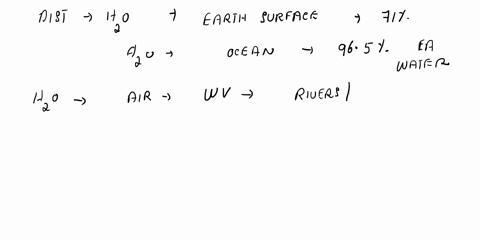 DIST → H2O → EARTH SURFACE → 71%
H2O → OCEAN → 96.5% EA WATER
H2O → AIR → WV → RIVERS/